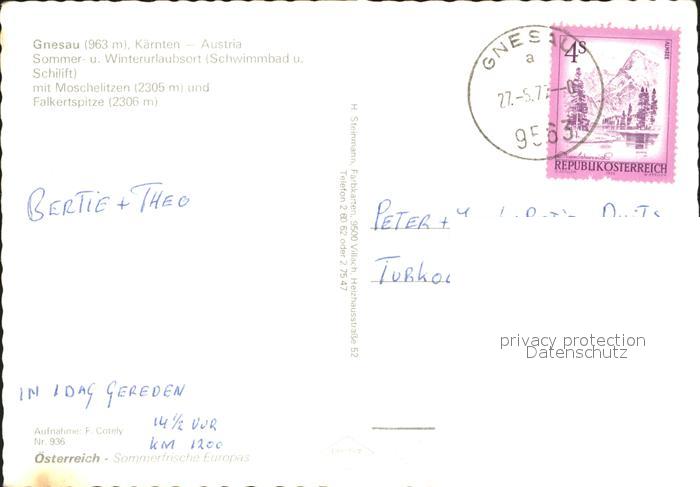 Gnesau (963 m), Kärnten — Austria
Sommer- u. Winterurlaubsort (Schwimmbad u.
Schilift)
mit Moschelitzen (2305 m) und
Falkertspitze (2306 m)
GNESAU
a
27.-5.77
9563
4S
ALMSEE
REPUBLIK ÖSTERREICH
H. Steinmann, Farbkarten, 9500 Villach, Heizhausstraße 52
Telefon 2 60 62 oder 2 75 47
BERTIE + THEO
PETER +
privacy protection
Datenschutz
IN 1 DAG GEREDEN
14 1/2 UUR
KM 1200
Aufnahme: F. Cotely
Nr. 936
Österreich - Sommerfrische Europas